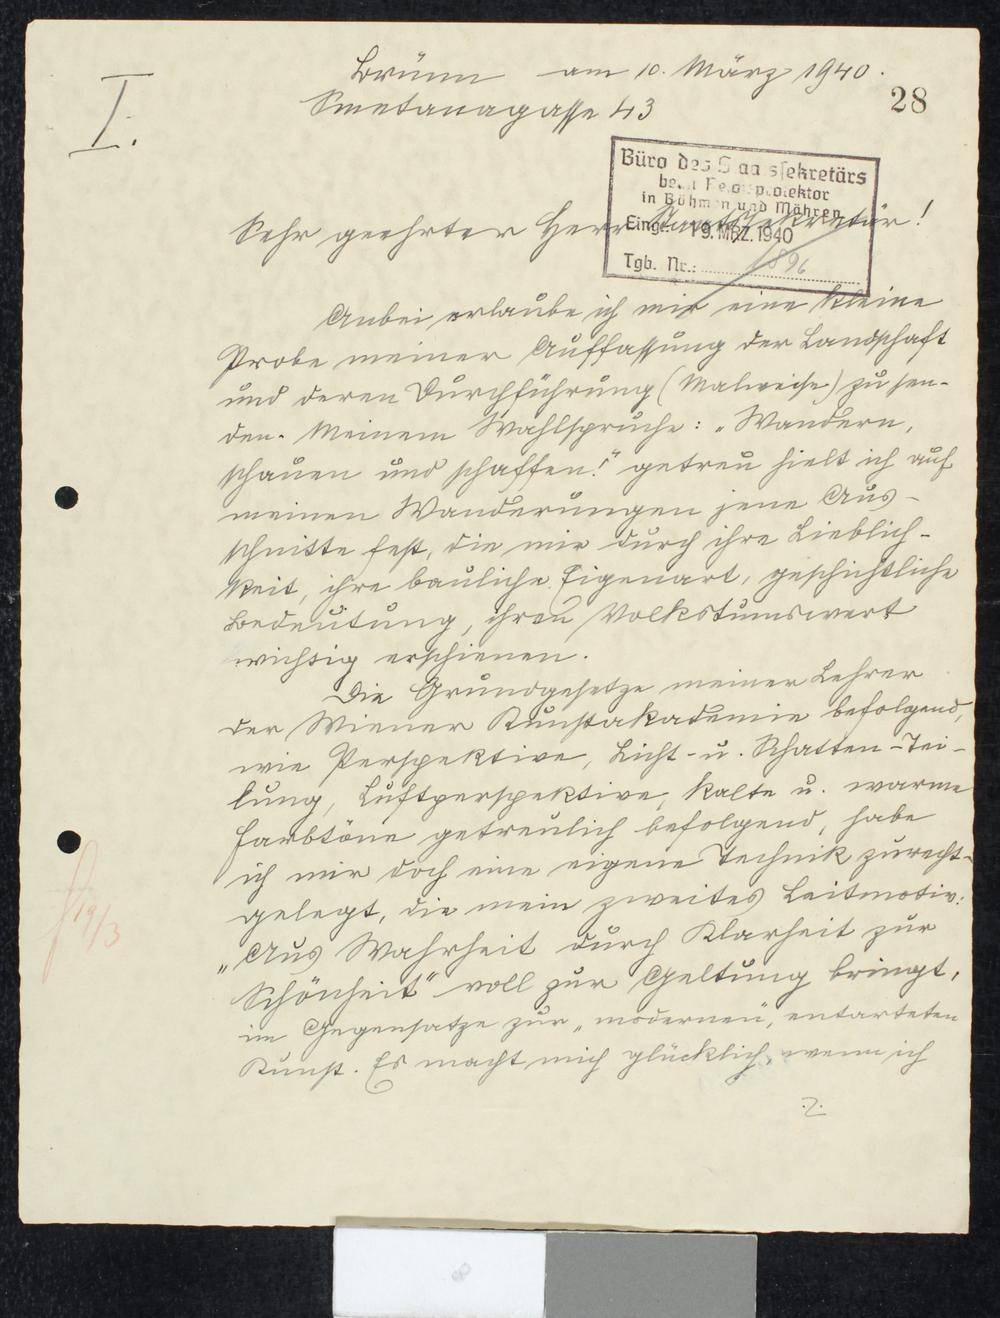 I.
Brünn am 10. März 1940.
28
Smetanagasse 43
Büro des Staatssekretärs
beim Reichsprotektor
in Böhmen und Mähren
Eing.: 19. MRZ. 1940
Tgb. Nr.: 896
Sehr geehrter Herr Staatssekretär!
Anbei erlaube ich mir eine kleine
Probe meiner Auffassung der Landschaft
und deren Durchführung (Malweise) zu sen-
den. Meinem Wahlspruche: „Wandern,
schauen und schaffen!" getreu hielt ich auf
meinen Wanderungen jene Aus-
schnitte fest, die mir durch ihre Lieblich-
keit, ihre bauliche Eigenart, geschichtliche
Bedeutung, ihren Volkstumswert
wichtig erschienen.
Die Grundgesetze meiner Lehrer
der Wiener Kunstakademie befolgend,
wie Perspektive, Licht- u. Schatten-Tei-
lung, Luftperspektive, kalte u. warme
Farbtöne getreulich befolgend, habe
ich mir doch eine eigene Technik zurecht-
gelegt, die mein zweites Leitmotiv:
„Aus Wahrheit durch Klarheit zur
Schönheit" voll zur Geltung bringt,
im Gegensatze zur „modernen", entarteten
Kunst. Es macht mich glücklich, wenn ich
19/3
.2.